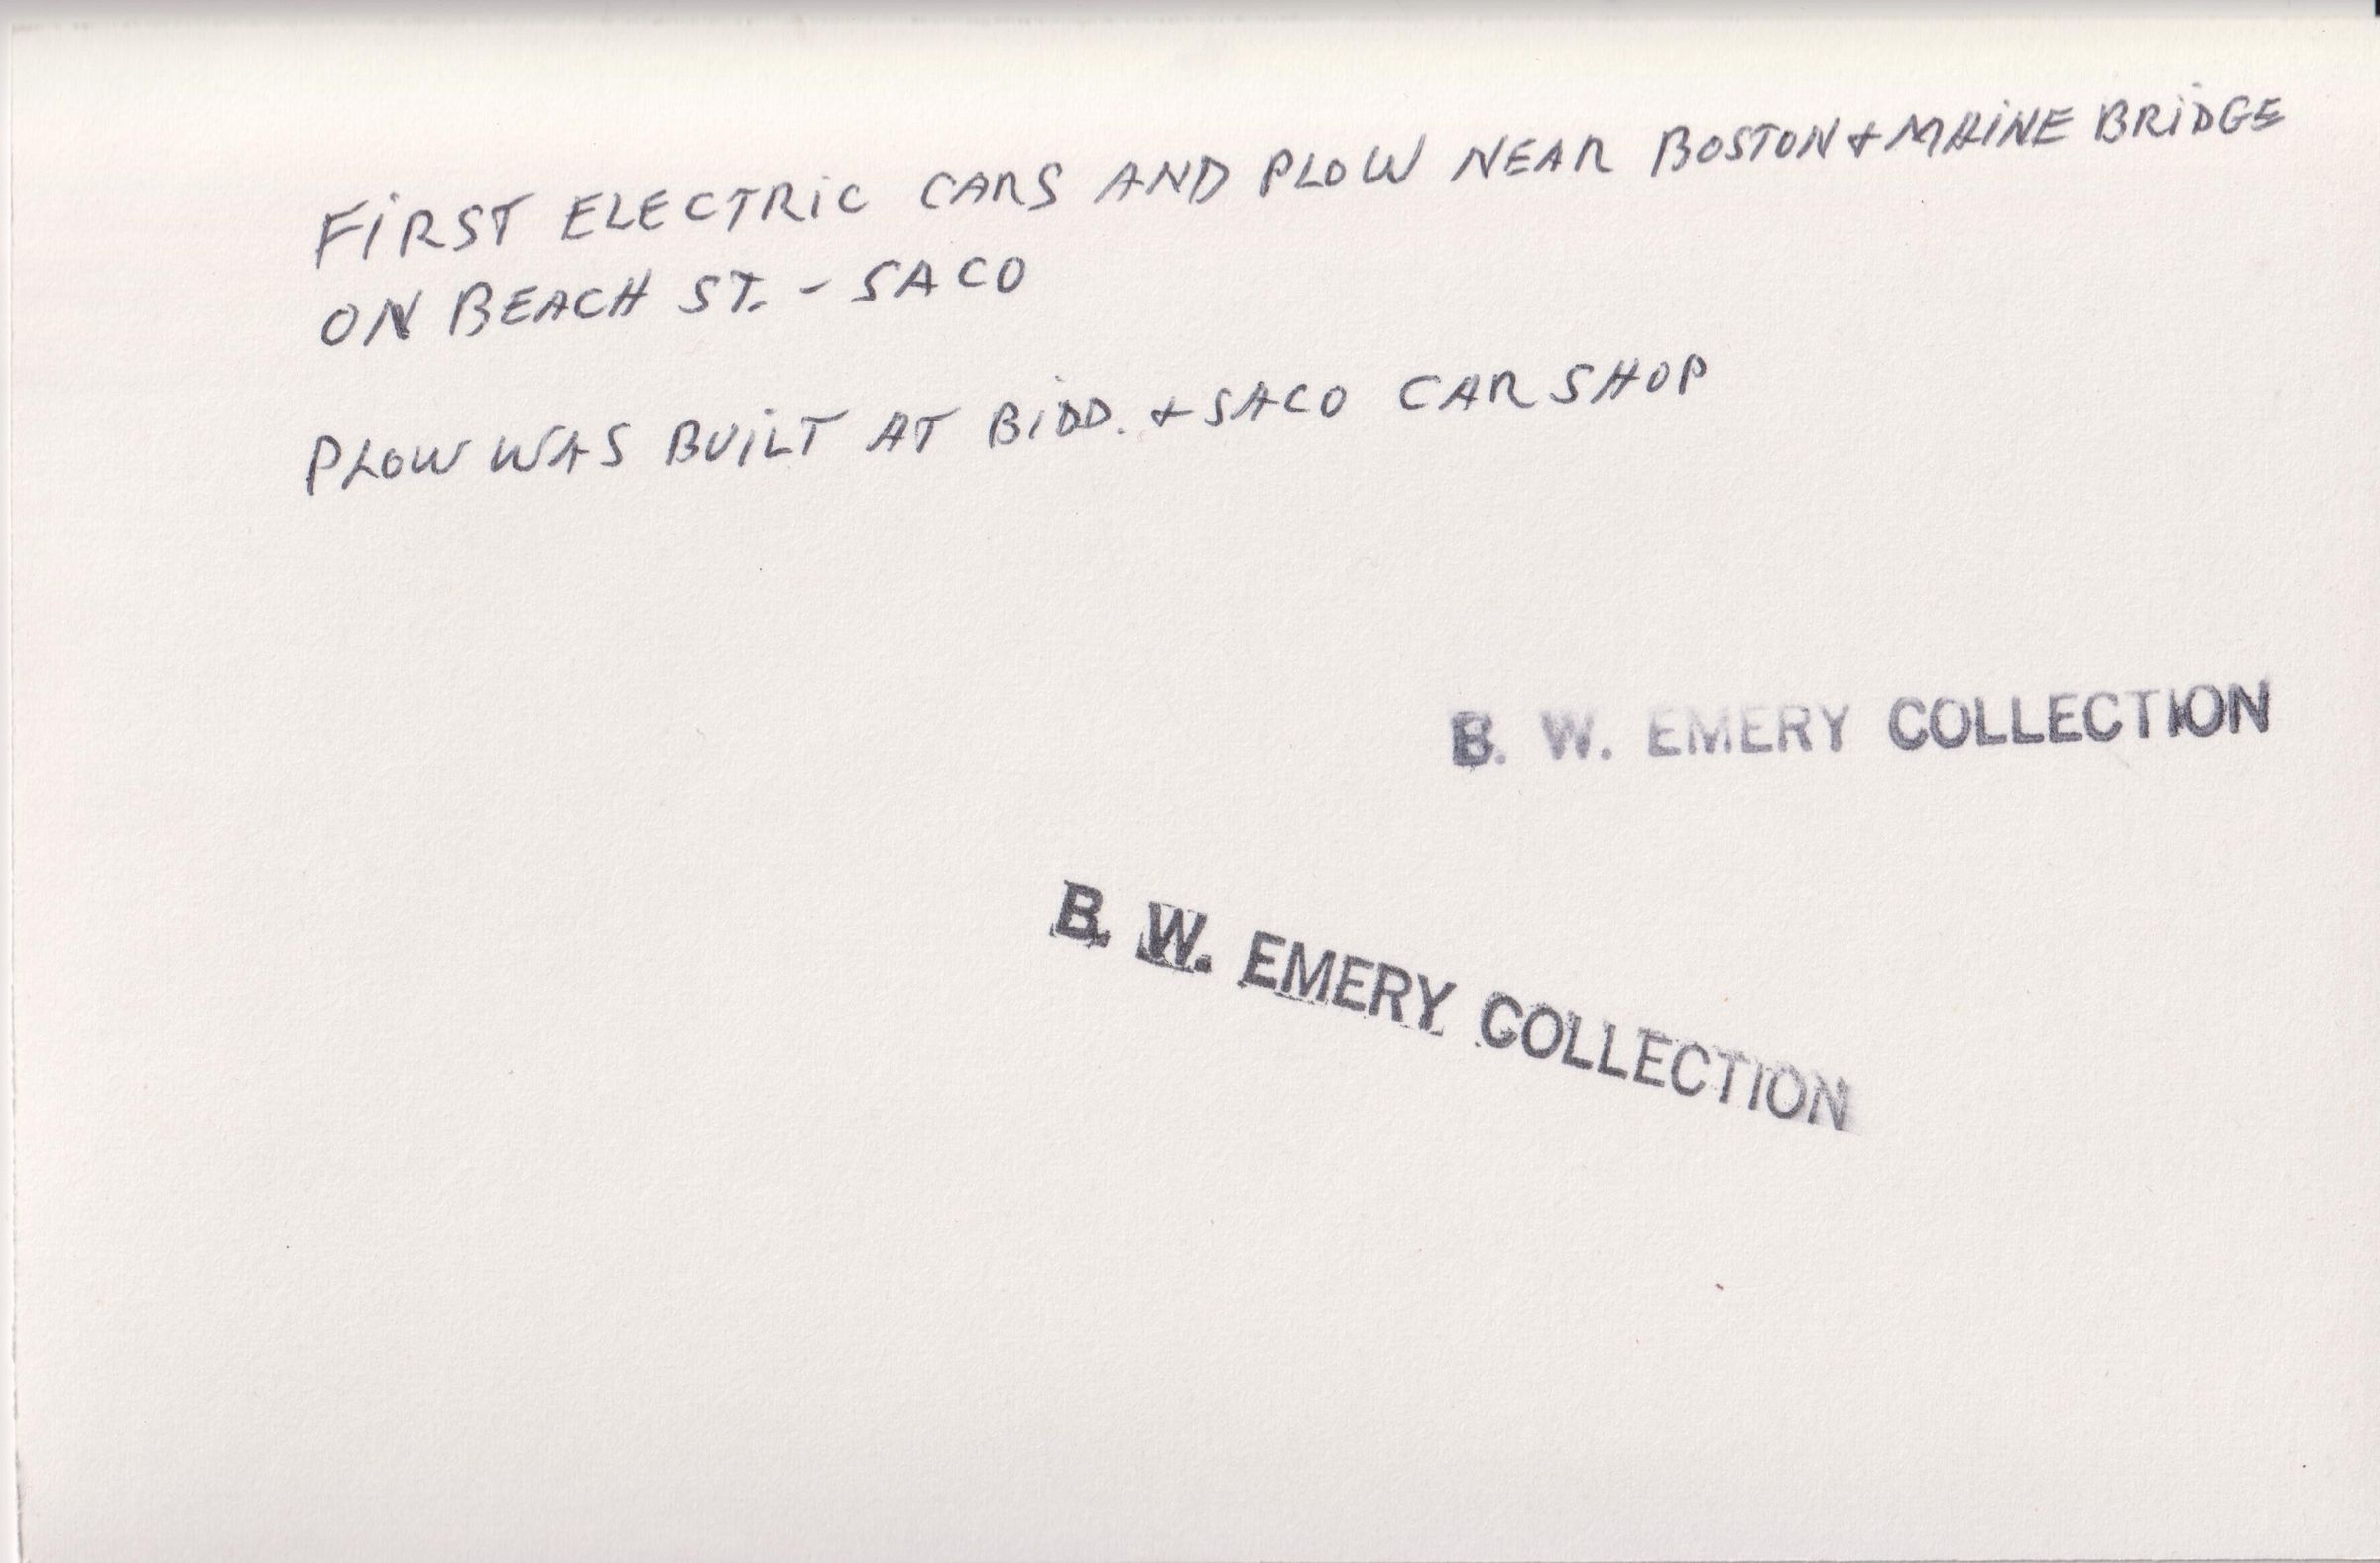 FIRST ELECTRIC CARS AND PLOW NEAR BOSTON + MAINE BRIDGE
ON BEACH ST. - SACO
PLOW WAS BUILT AT BIDD. + SACO CAR SHOP
B. W. EMERY COLLECTION
B. W. EMERY COLLECTION